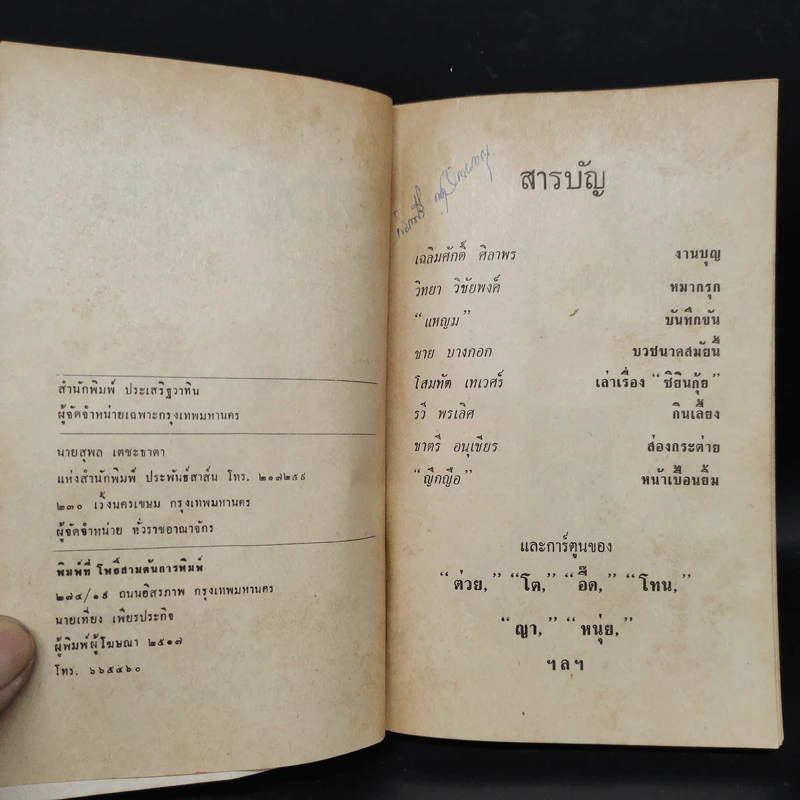 สำนักพิมพ์ ประเสริฐวาทิน
ผู้จัดจำหน่ายเฉพาะกรุงเทพมหานคร
นายสุพล เตชะธาดา
แห่งสำนักพิมพ์ ประพันธ์สาส์น โทร. ๒๑๗๒๕๙
๒๓๐ เวิ้งนครเขษม กรุงเทพมหานคร
ผู้จัดจำหน่าย ทั่วราชอาณาจักร
พิมพ์ที่ โพธิ์สามต้นการพิมพ์
๒๗๔/๑๙ ถนนอิสรภาพ กรุงเทพมหานคร
นายเที่ยง เพียรประกิจ
ผู้พิมพ์ผู้โฆษณา ๒๕๑๗
โทร. ๖๖๕๔๖๐
สารบัญ
เฉลิมศักดิ์ ศิลาพร งานบุญ
วิทยา วิชัยพงศ์ หมากรุก
“แหญม” บันทึกขัน
ชาย บางกอก บวชนาคสมัยนี้
โสมทัต เทเวศร์ เล่าเรื่อง “ซิยินกุ้ย”
รวี พรเลิศ กินเลี้ยง
ชาตรี อนุเธียร ส่องกระต่าย
“ญึกญือ” หน้าเปื้อนยิ้ม
และการ์ตูนของ
“ต่วย,” “โต,” “อี๊ด,” “โทน,”
“ญา,” “หนุ่ย,”
ฯลฯ